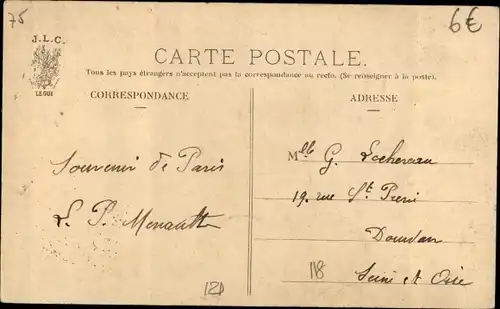 75
6€
J.L.C.
LE GUI
CARTE POSTALE.
Tous les pays étrangers n'acceptent pas la correspondance au recto. (Se renseigner à la poste).
CORRESPONDANCE
ADRESSE
Souvenir de Paris
L. P. Menault
Mlle G. Lochereau
19. rue St. Pierre
Dourdan
Seine et Oise
121
118